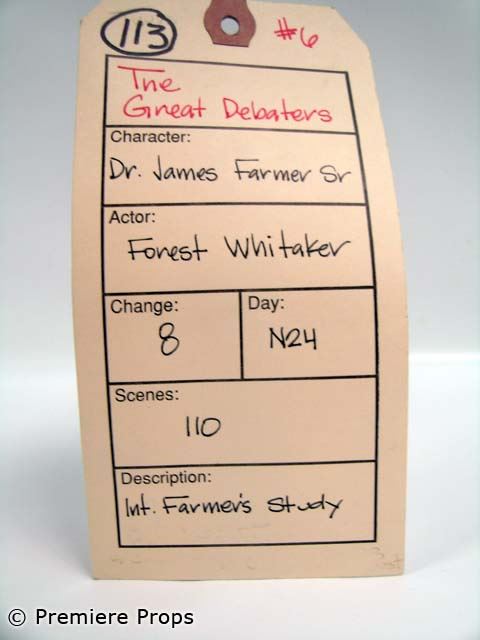 113
#6
The
Great Debaters
Character:
Dr. James Farmer Sr
Actor:
Forest Whitaker
Change:
8
Day:
N24
Scenes:
110
Description:
Int. Farmer's Study
© Premiere Props